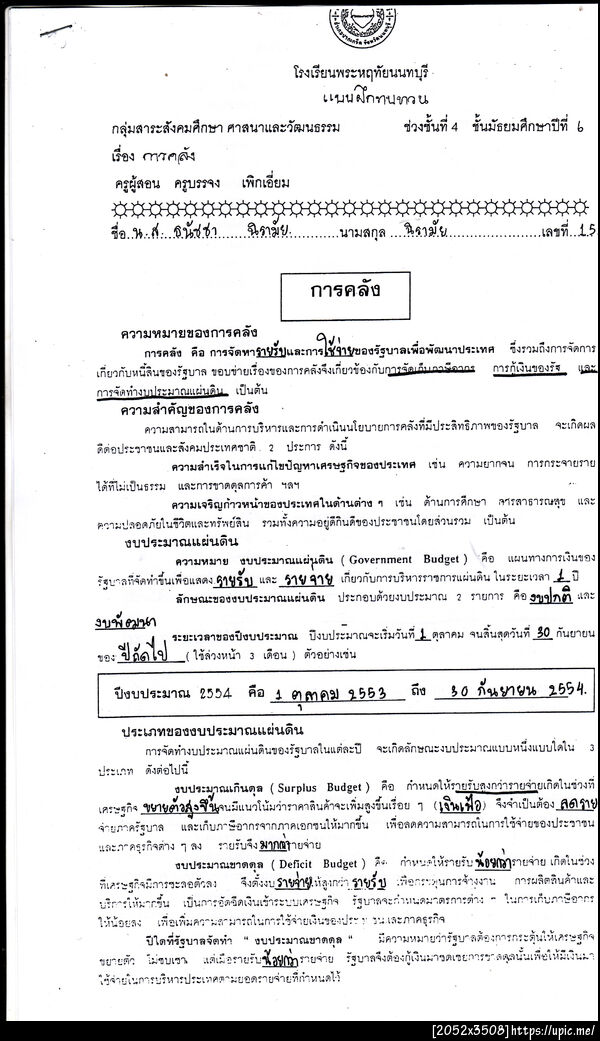 โรงเรียนพระหฤทัยนนทบุรี
แบบฝึกทบทวน
กลุ่มสาระสังคมศึกษา ศาสนาและวัฒนธรรม ช่วงชั้นที่ 4 ชั้นมัธยมศึกษาปีที่ 6
เรื่อง การคลัง
ครูผู้สอน ครูบรรจง เพิกเอี่ยม
ชื่อ น.ส. ธนัชชา นิรามัย นามสกุล นิรามัย เลขที่ 15
การคลัง
ความหมายของการคลัง
การคลัง คือ การจัดหารายรับและการใช้จ่ายของรัฐบาลเพื่อพัฒนาประเทศ ซึ่งรวมถึงการจัดการ
เกี่ยวกับหนี้สินของรัฐบาล ขอบข่ายเรื่องของการคลังจึงเกี่ยวข้องกับการจัดเก็บภาษีอากร การกู้เงินของรัฐ และ
การจัดทำงบประมาณแผ่นดิน เป็นต้น
ความสำคัญของการคลัง
ความสามารถในด้านการบริหารและการดำเนินนโยบายการคลังที่มีประสิทธิภาพของรัฐบาล จะเกิดผล
ดีต่อประชาชนและสังคมประเทศชาติ 2 ประการ ดังนี้
ความสำเร็จในการแก้ไขปัญหาเศรษฐกิจของประเทศ เช่น ความยากจน การกระจายราย
ได้ที่ไม่เป็นธรรม และการขาดดุลการค้า ฯลฯ
ความเจริญก้าวหน้าของประเทศในด้านต่าง ๆ เช่น ด้านการศึกษา การสาธารณสุข และ
ความปลอดภัยในชีวิตและทรัพย์สิน รวมทั้งความอยู่ดีกินดีของประชาชนโดยส่วนรวม เป็นต้น
งบประมาณแผ่นดิน
ความหมาย งบประมาณแผ่นดิน ( Government Budget ) คือ แผนทางการเงินของ
รัฐบาลที่จัดทำขึ้นเพื่อแสดง รายรับ และ รายจ่าย เกี่ยวกับการบริหารราชการแผ่นดิน ในระยะเวลา 1 ปี
ลักษณะของงบประมาณแผ่นดิน ประกอบด้วยงบประมาณ 2 รายการ คือ งบปกติ และ
งบพัฒนา
ระยะเวลาของปีงบประมาณ ปีงบประมาณจะเริ่มวันที่ 1 ตุลาคม จนสิ้นสุดวันที่ 30 กันยายน
ของ ปีถัดไป ( ใช้ล่วงหน้า 3 เดือน ) ตัวอย่างเช่น
ปีงบประมาณ 2554 คือ 1 ตุลาคม 2553 ถึง 30 กันยายน 2554.
ประเภทของงบประมาณแผ่นดิน
การจัดทำงบประมาณแผ่นดินของรัฐบาลในแต่ละปี จะเกิดลักษณะงบประมาณแบบหนึ่งแบบใดใน 3
ประเภท ดังต่อไปนี้
งบประมาณเกินดุล ( Surplus Budget ) คือ กำหนดให้รายรับสูงกว่ารายจ่ายเกิดในช่วงที่
เศรษฐกิจ ขยายตัวสูงขึ้นจนมีแนวโน้มว่าราคาสินค้าจะเพิ่มสูงขึ้นเรื่อย ๆ (เงินเฟ้อ) จึงจำเป็นต้อง ลดราย
จ่ายภาครัฐบาล และเก็บภาษีอากรจากภาคเอกชนให้มากขึ้น เพื่อลดความสามารถในการใช้จ่ายของประชาชน
และภาคธุรกิจต่าง ๆ ลง รายรับจึงมากกว่ารายจ่าย
งบประมาณขาดดุล ( Deficit Budget ) คือ กำหนดให้รายรับ น้อยกว่ารายจ่าย เกิดในช่วง
ที่เศรษฐกิจมีการชะลอตัวลง จึงตั้งงบรายจ่ายให้สูงกว่า รายรับ เพื่อกระตุ้นการจ้างงาน การผลิตสินค้าและ
บริการให้มากขึ้น เป็นการอัดฉีดเงินเข้าระบบเศรษฐกิจ รัฐบาลจะกำหนดมาตรการต่าง ๆ ในการเก็บภาษีอากร
ให้น้อยลง เพื่อเพิ่มความสามารถในการใช้จ่ายเงินของประชาชนและภาคธุรกิจ
ปีใดที่รัฐบาลจัดทำ " งบประมาณขาดดุล " มีความหมายว่ารัฐบาลต้องการกระตุ้นให้เศรษฐกิจ
ขยายตัว ไม่ซบเซา แต่เมื่อรายรับน้อยกว่ารายจ่าย รัฐบาลจึงต้องกู้เงินมาชดเชยการขาดดุลนั้นเพื่อให้มีเงินมา
ใช้จ่ายในการบริหารประเทศตามยอดรายจ่ายที่กำหนดไว้
[2052x3508]https://upic.me/